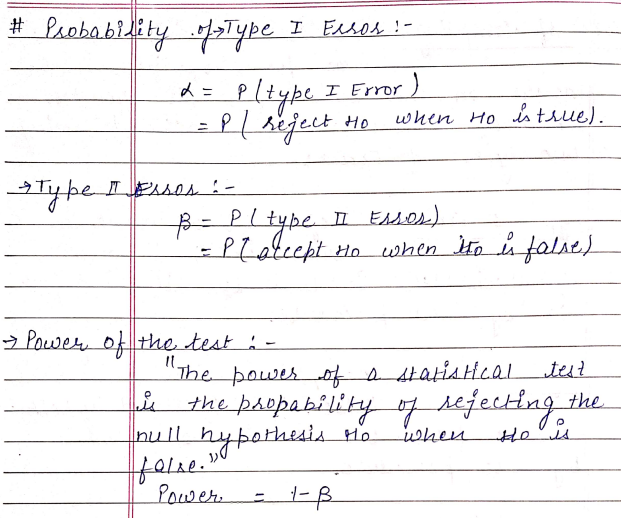 # Probability of → Type I Error :-
α = P(type I Error)
= P( reject Ho when Ho is true).
→ Type II Error :-
β = P( type II Error)
= P( accept Ho when Ho is false)
→ Power of the test :-
"The power of a statistical test
is the propability of rejecting the
null hypothesis Ho when Ho is
false."
Power = 1-β